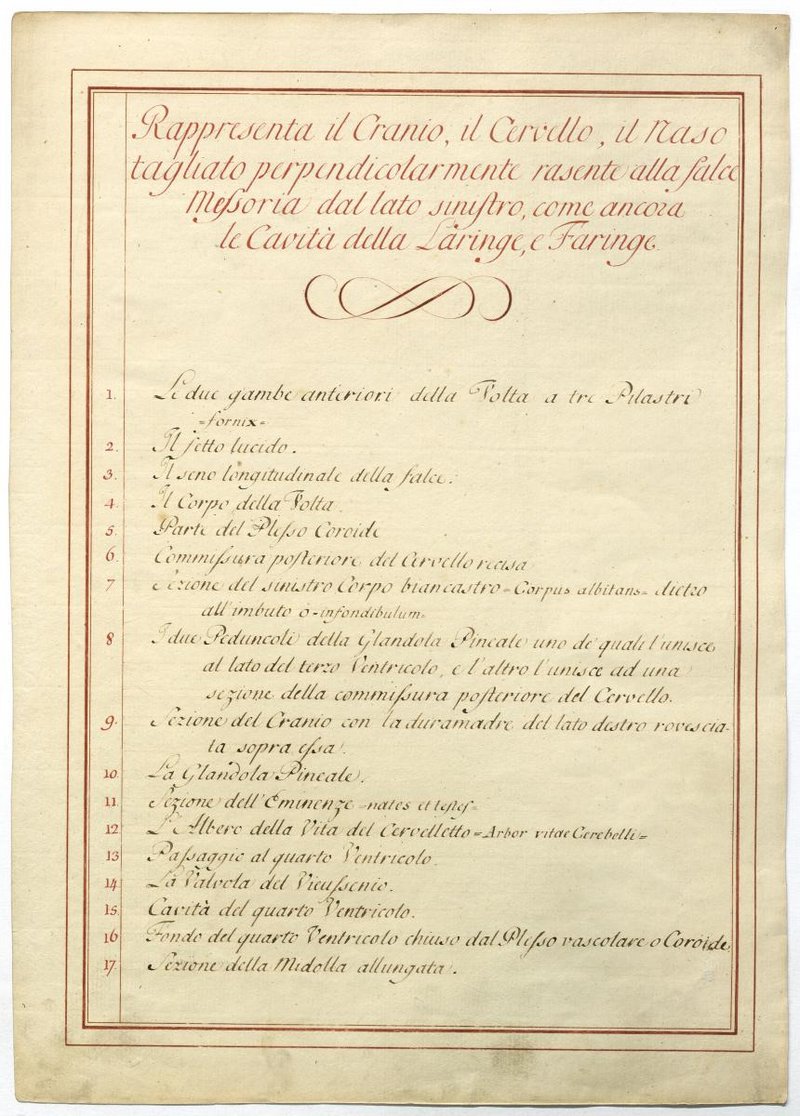 Rappresenta il Cranio, il Cervello, il Naso
tagliato perpendicolarmente rasente alla falce
Meſsoria dal lato siniſtro, come ancora
le Cavità della Laringe, e Faringe.
1. Le due gambe anteriori della Volta a tre Pilastri
=fornix=
2. Il ſetto lucido.
3. Il seno longitudinale della falce.
4. Il Corpo della Volta.
5. Parte del Pleſso Coroide
6. Commiſsura poſteriore del Cervello recisa
7 Sezione del sinistro Corpo biancastro=Corpus albitans= dietro
all'imbuto o=infondibulum=
8 I due Peduncoli della Glandola Pineale uno de' quali l'unisce
al lato del terzo Ventricolo, e l'altro l'unisce ad una
sezione della commiſsura poſteriore del Cervello.
9. Sezione del Cranio con la duramadre del lato destro rovescia-
ta sopra eſsa.
10. La Glandola Pineale.
11. Sezione dell'Eminenze =nates et teſteſ=
12 L'Albero della Vita del Cervelletto=Arbor vitae Cerebelli=
13 Paſsaggio al quarto Ventricolo.
14 La Valvola del Vieuſsenio.
15 Cavità del quarto Ventricolo.
16 Fondo del quarto Ventricolo chiuso dal Pleſso vascolare o Coroide
17 Sezione della Midolla allungata.